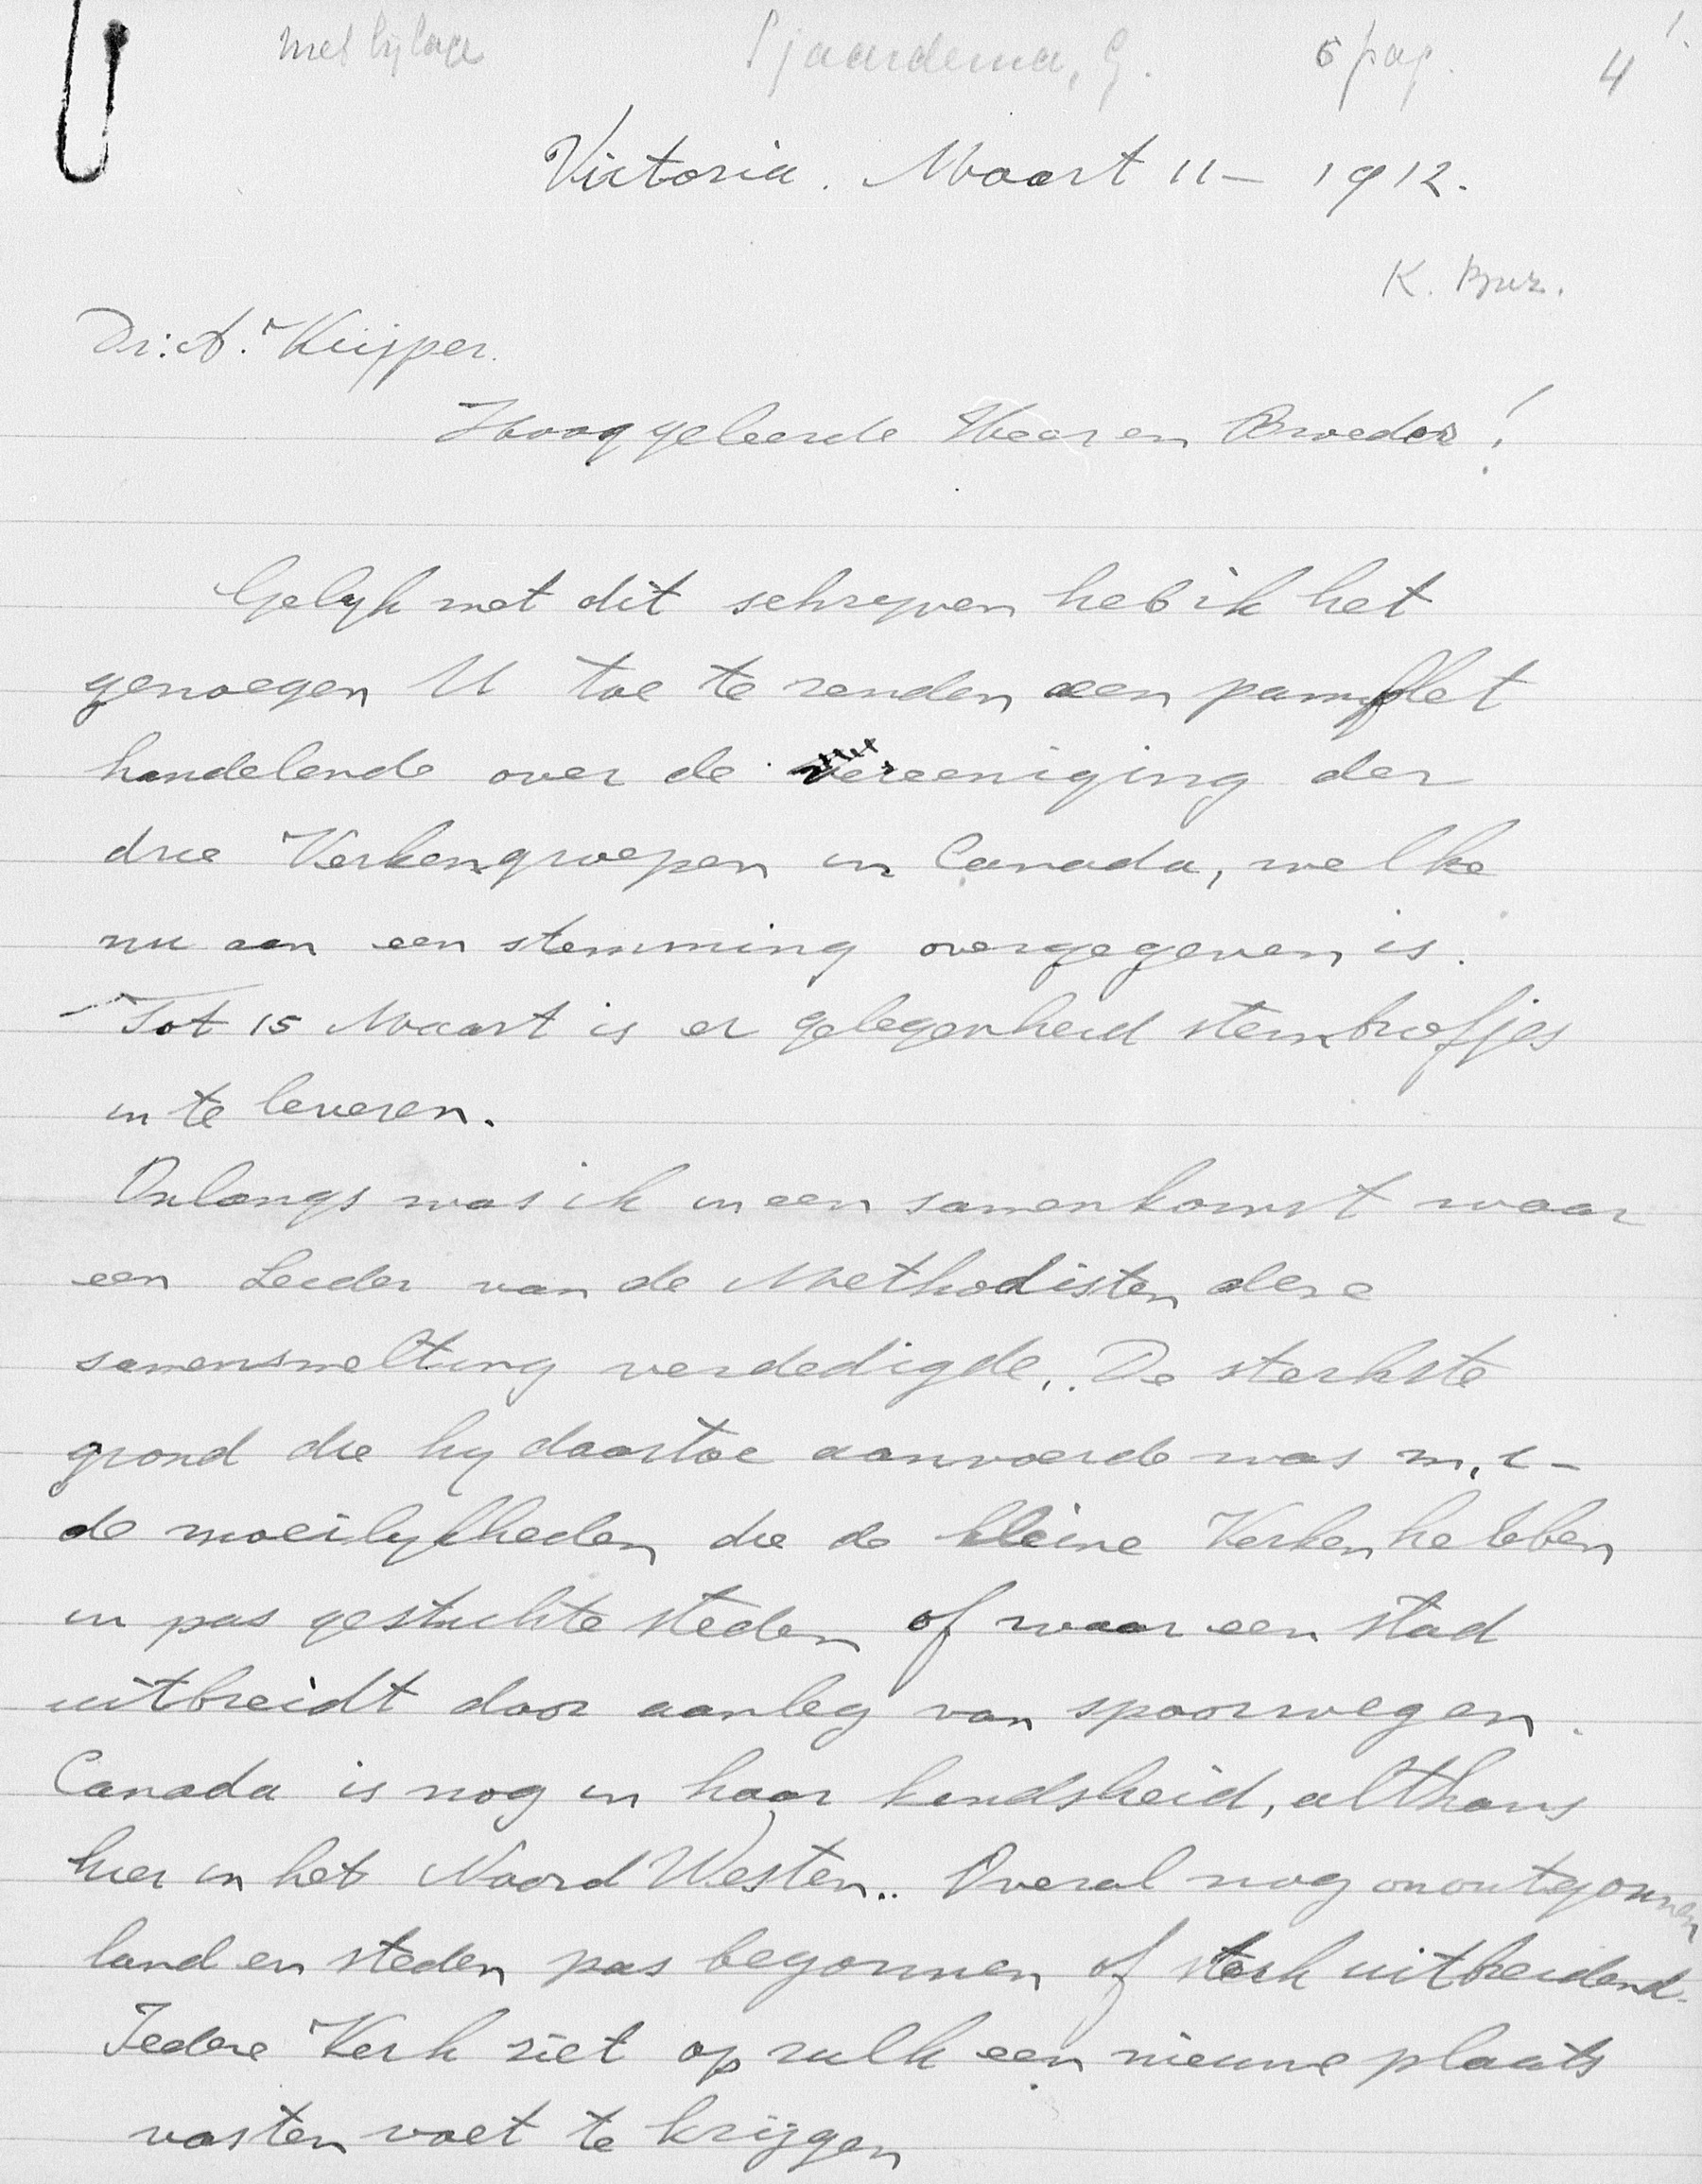 met bylage Tjaardema, G. 6 pag. 4
Victoria. Maart 11 – 1912.
K. Bur.
Dr: A. Kuijper.
Hooggeleerde Heer en Broeder!
Gelyk met dit schryven heb ik het
genoegen U toe te zenden een pamflet
handelende over de vereeniging der
drie Kerkengroepen in Canada, welke
nu aan een stemming overgegeven is.
Tot 15 Maart is er gelegenheid stembriefjes
in te leveren.
Onlangs was ik in een samenkomst waar
een Leider van de Methodisten deze
samensmelting verdedigde. De sterkste
grond die hy daartoe aanvoerde was m.i –
de moeilykheden die de kleine Kerken hebben
in pas gestichte steden of waar een stad
uitbreidt door aanleg van spoorwegen.
Canada is nog in haar kindsheid, althans
hier in het Noord Westen.. Overal nog onontgonnen
land en steden pas begonnen of sterk uitbreidend.
Iedere Kerk ziet op zulk een nieuwe plaats
vasten voet te krijgen